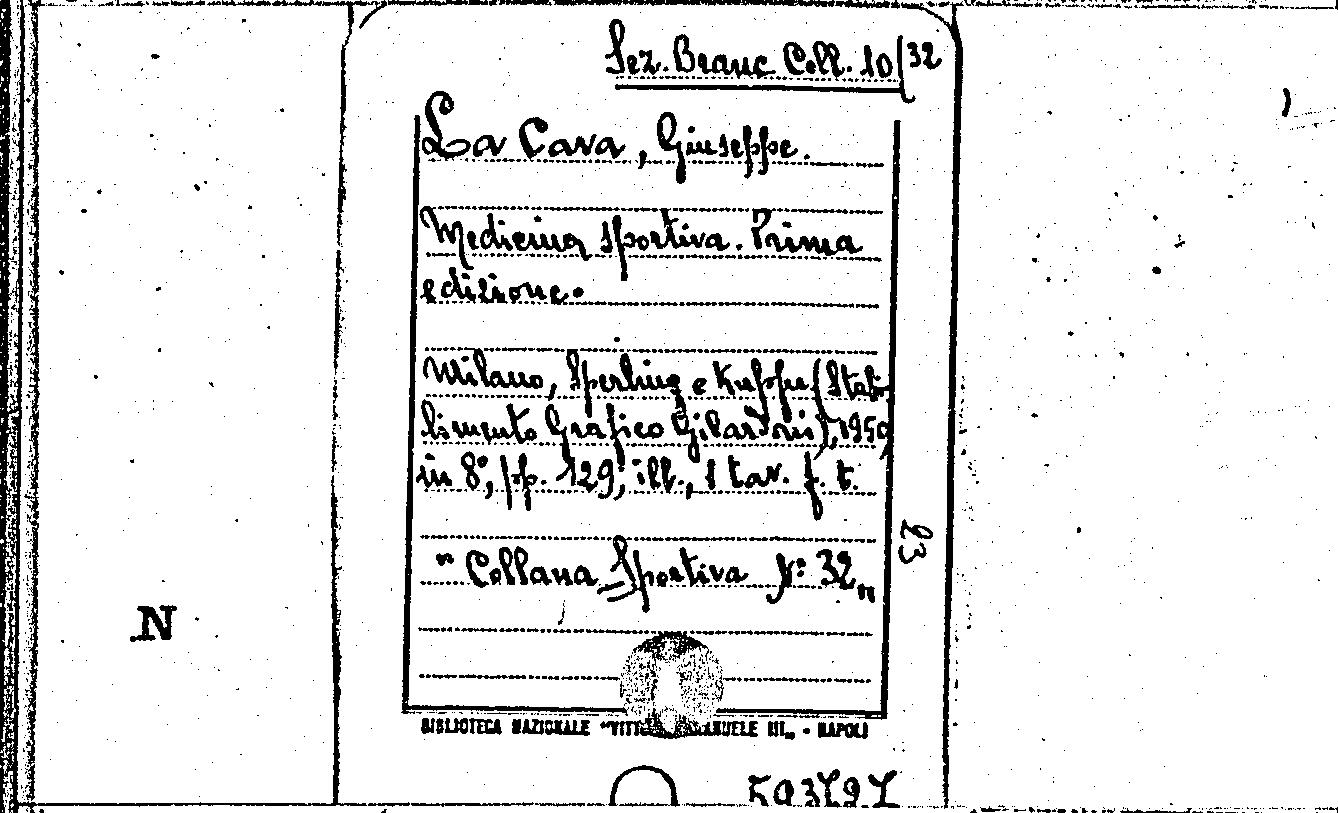 Sez. Branc Coll. 10/32
La Cava, Giuseppe.
Medicina Sportiva. Prima
edizione.
Milano, Sperling e Kupfer (Stabi-
limento Grafico Gilardoni), 1950
in 8°, pp. 129; ill., 1 tav. f. t.
23
"Collana Sportiva N° 32"
N
BIBLIOTECA NAZIONALE "VITT EMANUELE III" - NAPOLI